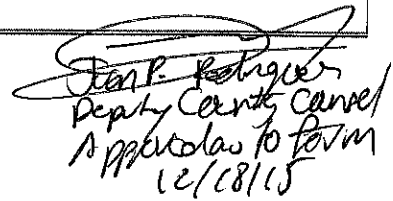 P. Rodriguez
Deputy County Counsel
Approved as to form
12/18/15